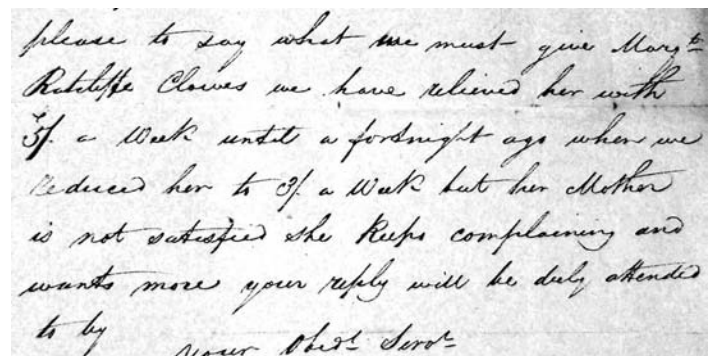 please to say what we must give Margt
Ratcliffe Clowes we have relieved her with
5/. a Week until a fortnight ago when we
reduced her to 3/. a Week but her Mother
is not satisfied she Keeps complaining and
wants more your reply will be duly attended
to by
your Obedt Servt